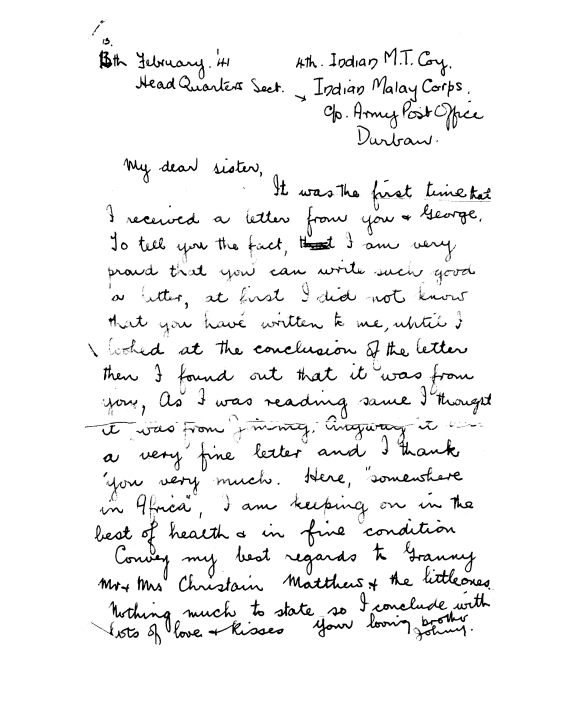 13th February. '41
4th. Indian M.T. Coy.
Head Quarters Sect.
Indian Malay Corps.
c/o. Army Post Office
Durban.
My dear sister,
It was the first time that
I received a letter from you & George.
To tell you the fact, I am very
proud that you can write such good
a letter, at first I did not know
that you have written to me, until I
looked at the conclusion of the letter
then I found out that it was from
you, As I was reading same I thought
it was from Jimmy. Anyway it
a very fine letter and I thank
you very much. Here, "somewhere
in Africa", I am keeping on in the
best of health & in fine condition
Convey my best regards to Granny
Mr & Mrs Christain Matthews & the little ones.
Nothing much to state so I conclude with
lots of love & kisses your loving brother
Johnny.